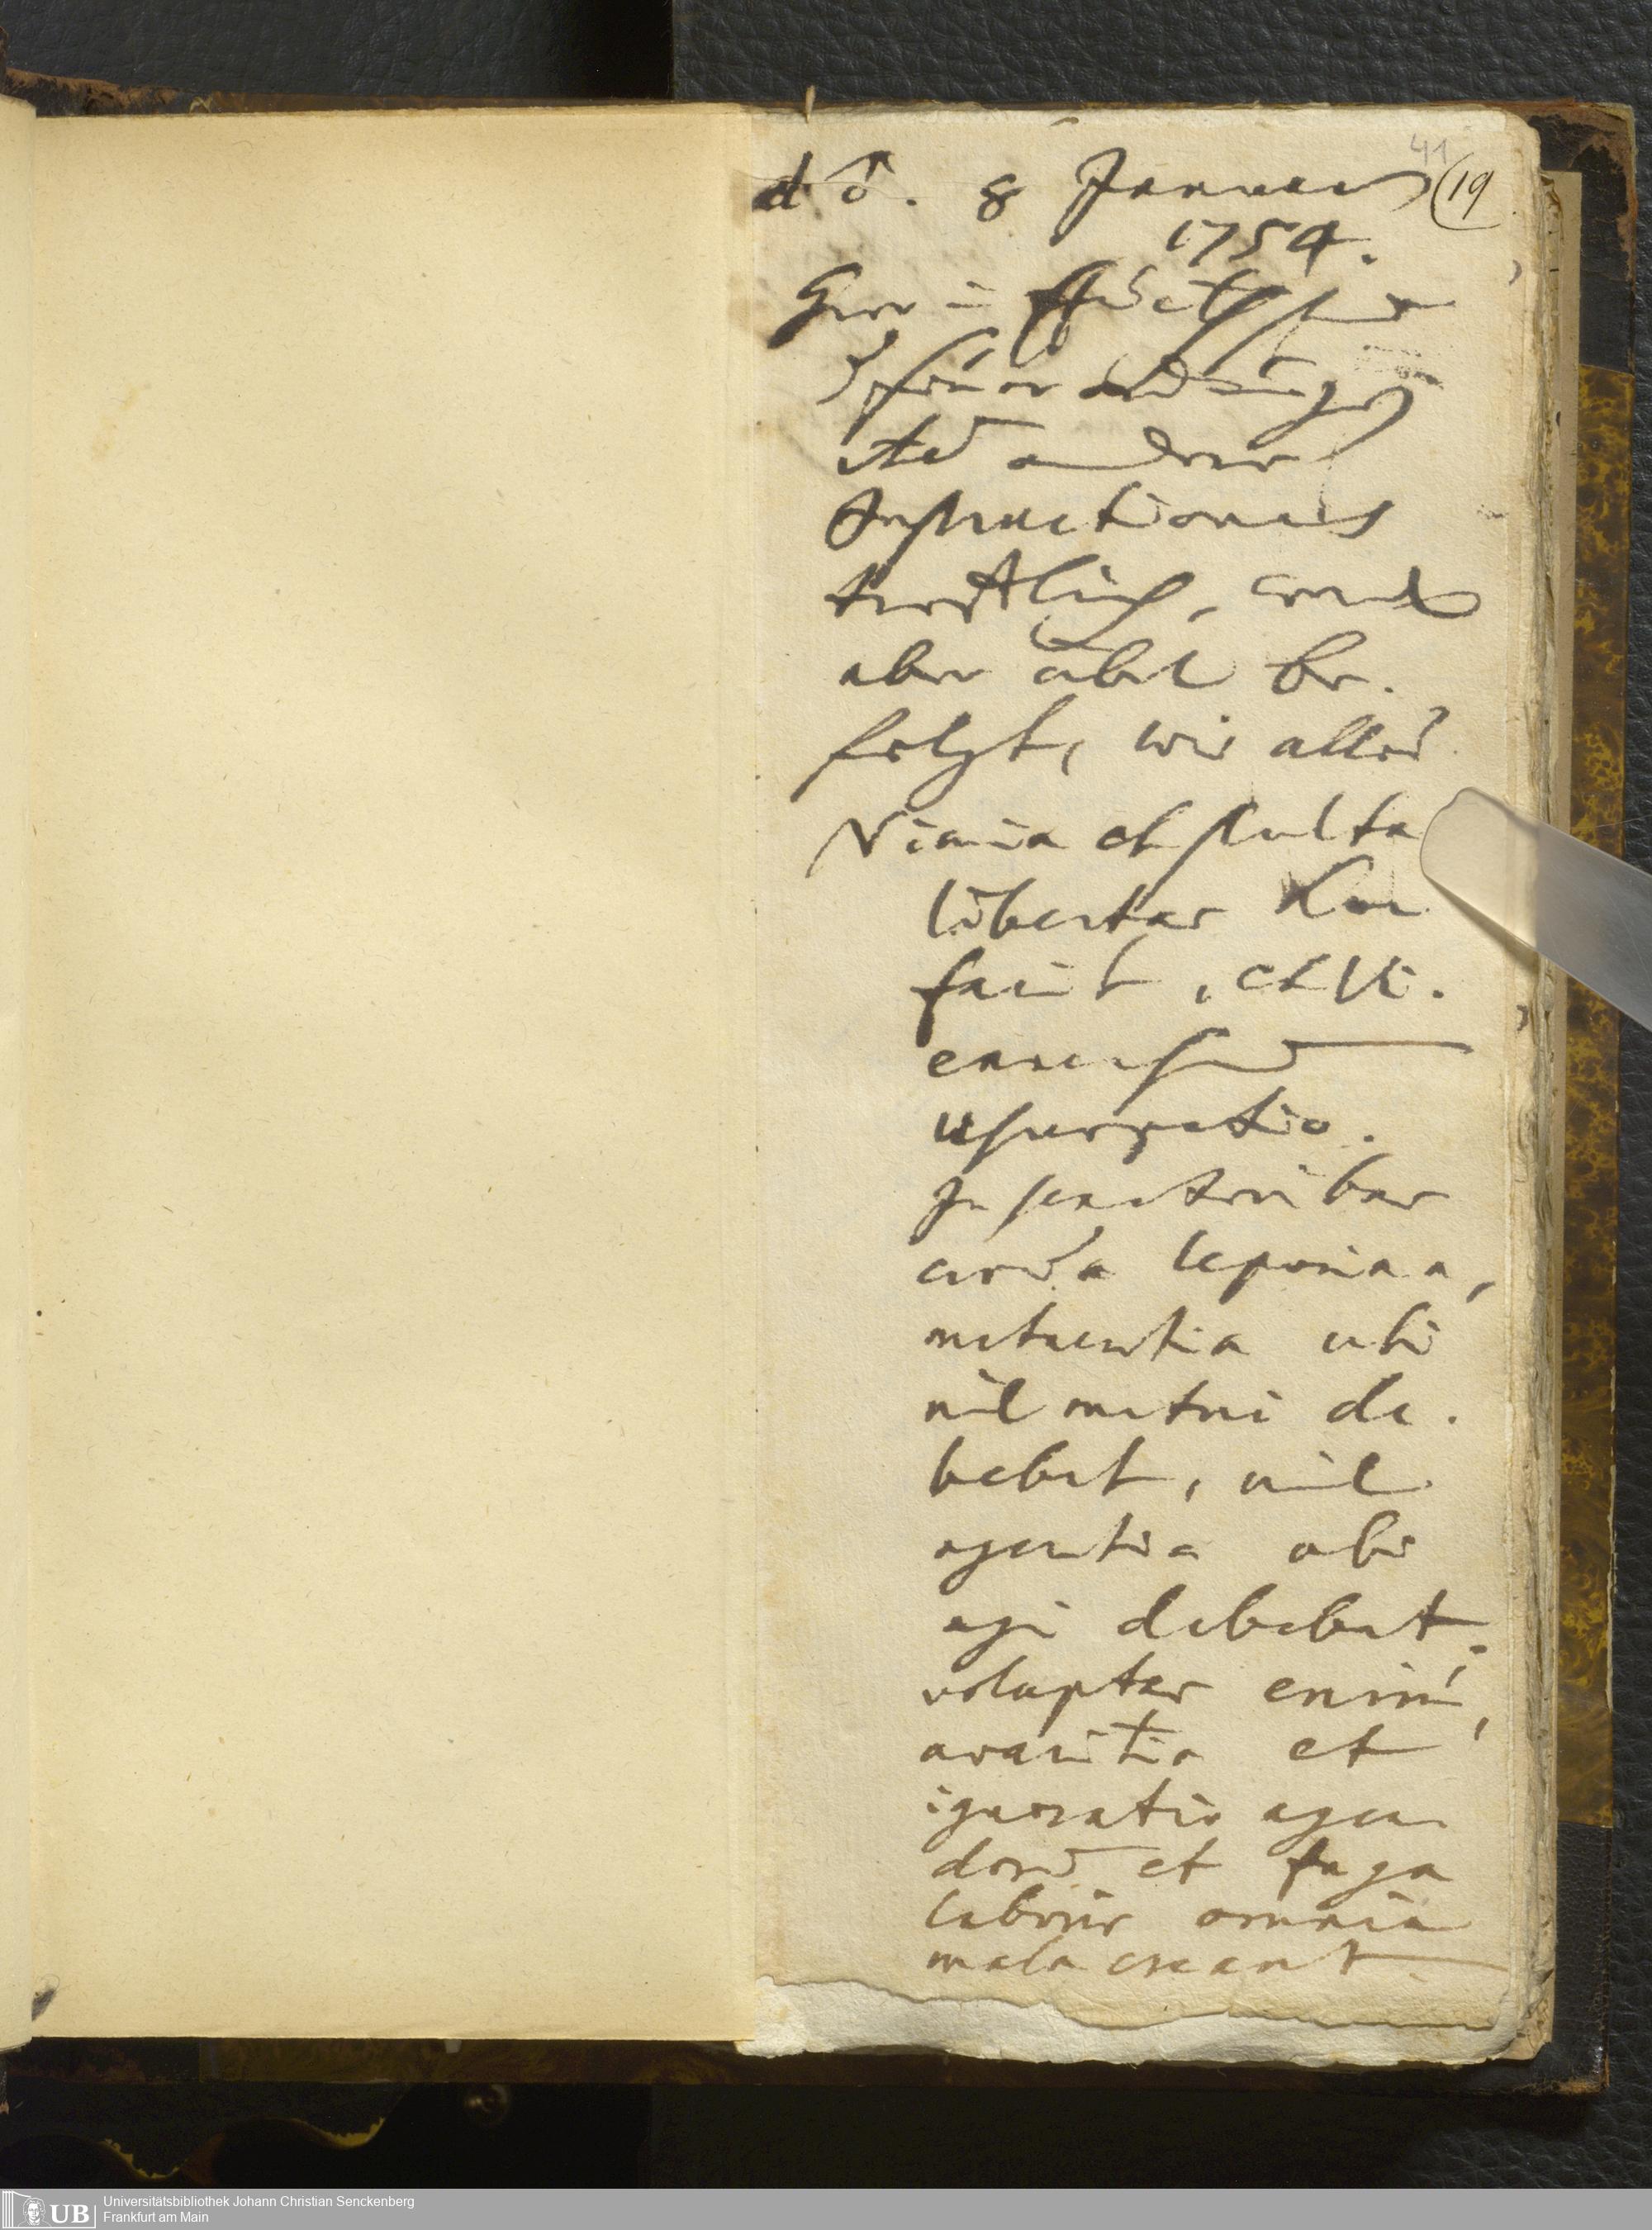 41
d ♂. 8 Januar (19
1754.
Hier in
ordnungen
item andere
Instructiones
trefflich, werd
aber übel be.
folgt, wie alles
Nimia et stulta
libertas hoc
facit, et Vi.
ennensium
usurpatio.
In senatoribus
corda leporina,
metuentia ubi
nil metui de.
bebat, nil
agentia ubi
agi debebat.
voluptas enim,
avaritia et
ignoratio agen
dorum et fuga
laboris omnia
mala creant
UB
Universitätsbibliothek Johann Christian Senckenberg
Frankfurt am Main